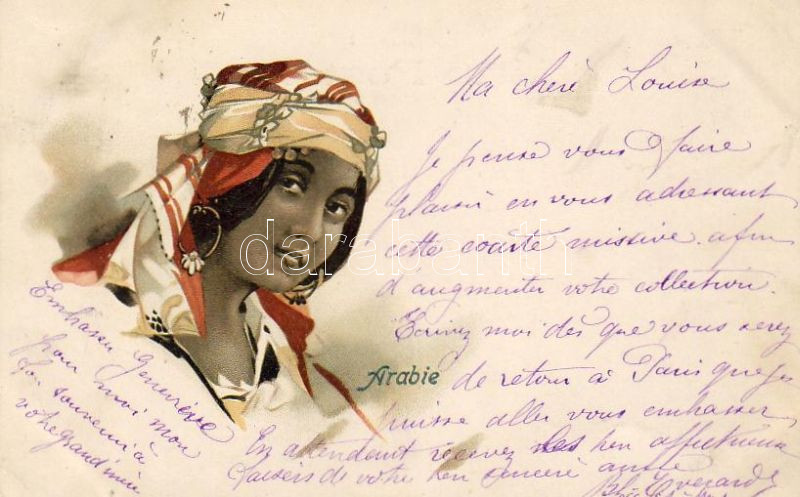 Ma chère Louise
Je pense vous faire
plaisir en vous adressant
cette courte missive afin
d'augmenter votre collection.
Ecrivez moi dès que vous serez
de retour à Paris que je
puisse aller vous embrasser
En attendant recevez les bien affectueux
baisers de votre bien sincère amie
Arabie
Embrassez Geneviève
pour moi mon
bon souvenir à
votre grand'mère
darabanth